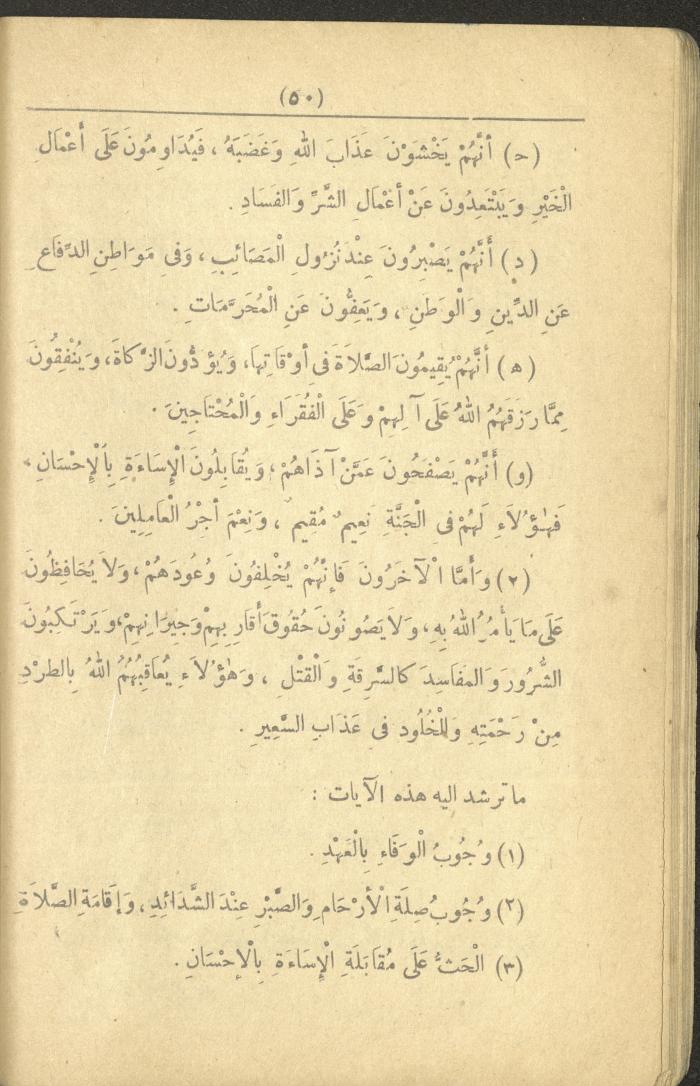 (٥٠)
(ح) أَنَّهُمْ يَخْشَوْنَ عَذَابَ اللهِ وَغَضَبَهُ ، فَيُدَاوِمُونَ عَلَى أَعْمَالِ
الْخَيْرِ وَيَبْتَعِدُونَ عَنْ أَعْمَالِ الشَّرِّ وَالْفَسَادِ .
(د) أَنَّهُمْ يَصْبِرُونَ عِنْدَ نُزُولِ الْمَصَائِبِ ، وَفِى مَوَاطِنِ الدِّفَاعِ
عَنِ الدِّينِ وَالْوَطَنِ ، وَيَعِفُّونَ عَنِ الْمُحَرَّمَاتِ .
(ه) أَنَّهُمْ يُقِيمُونَ الصَّلَاةَ فِى أَوْقَاتِهَا، وَيُؤَدُّونَ الزَّكَاةَ، وَيُنْفِقُونَ
مِمَّا رَزَقَهُمُ اللهُ عَلَى آلِهِمْ وَعَلَى الْفُقَرَاءِ وَالْمُحْتَاجِينَ .
(و) أَنَّهُمْ يَصْفَحُونَ عَمَّنْ آذَاهُمْ ، وَيُقَابِلُونَ الْإِسَاءَةِ بِالْإِحْسَانِ ،
فَهٰؤُلَاءِ لَهُمْ فِى الْجَنَّةِ نَعِيمٌ مُقِيمٌ ، وَنِعْمَ أَجْرُ الْعَامِلِينَ .
(٢) وَأَمَّا الْآخَرُونَ فَإِنَّهُمْ يُخْلِفُونَ وُعُودَهُمْ ، وَلَا يُحَافِظُونَ
عَلَى مَا يَأْمُرُ اللهُ بِهِ ، وَلَا يَصُونُونَ حُقُوقَ أَقَارِبِهِمْ وَجِيرَانِهِمْ ، وَيَرْتَكِبُونَ
الشُّرُورَ وَالمَفَاسِدَ كَالسَّرِقَةِ وَالْقَتْلِ ، وَهٰؤُلَاءِ يُعَاقِبُهُمُ اللهُ بِالطرْدِ
مِنْ رَحْمَتِهِ وَالْخُلُودِ فى عَذَابِ السَّعِيرِ .
ما ترشد اليه هذه الآيات :
(١) وُجُوبُ الْوَفَاءِ بِالْعَهْدِ .
(٢) وُجُوبُ صِلَةِ الْأَرْحَامِ وَالصَّبْرِ عِنْدَ الشَّدَائِدِ ، وَإِقَامَةِ الصَّلَاةِ
(٣) الْحَثُّ عَلَى مُقَابَلَةِ الْإِسَاءَةِ بِالْإِحْسَانِ .